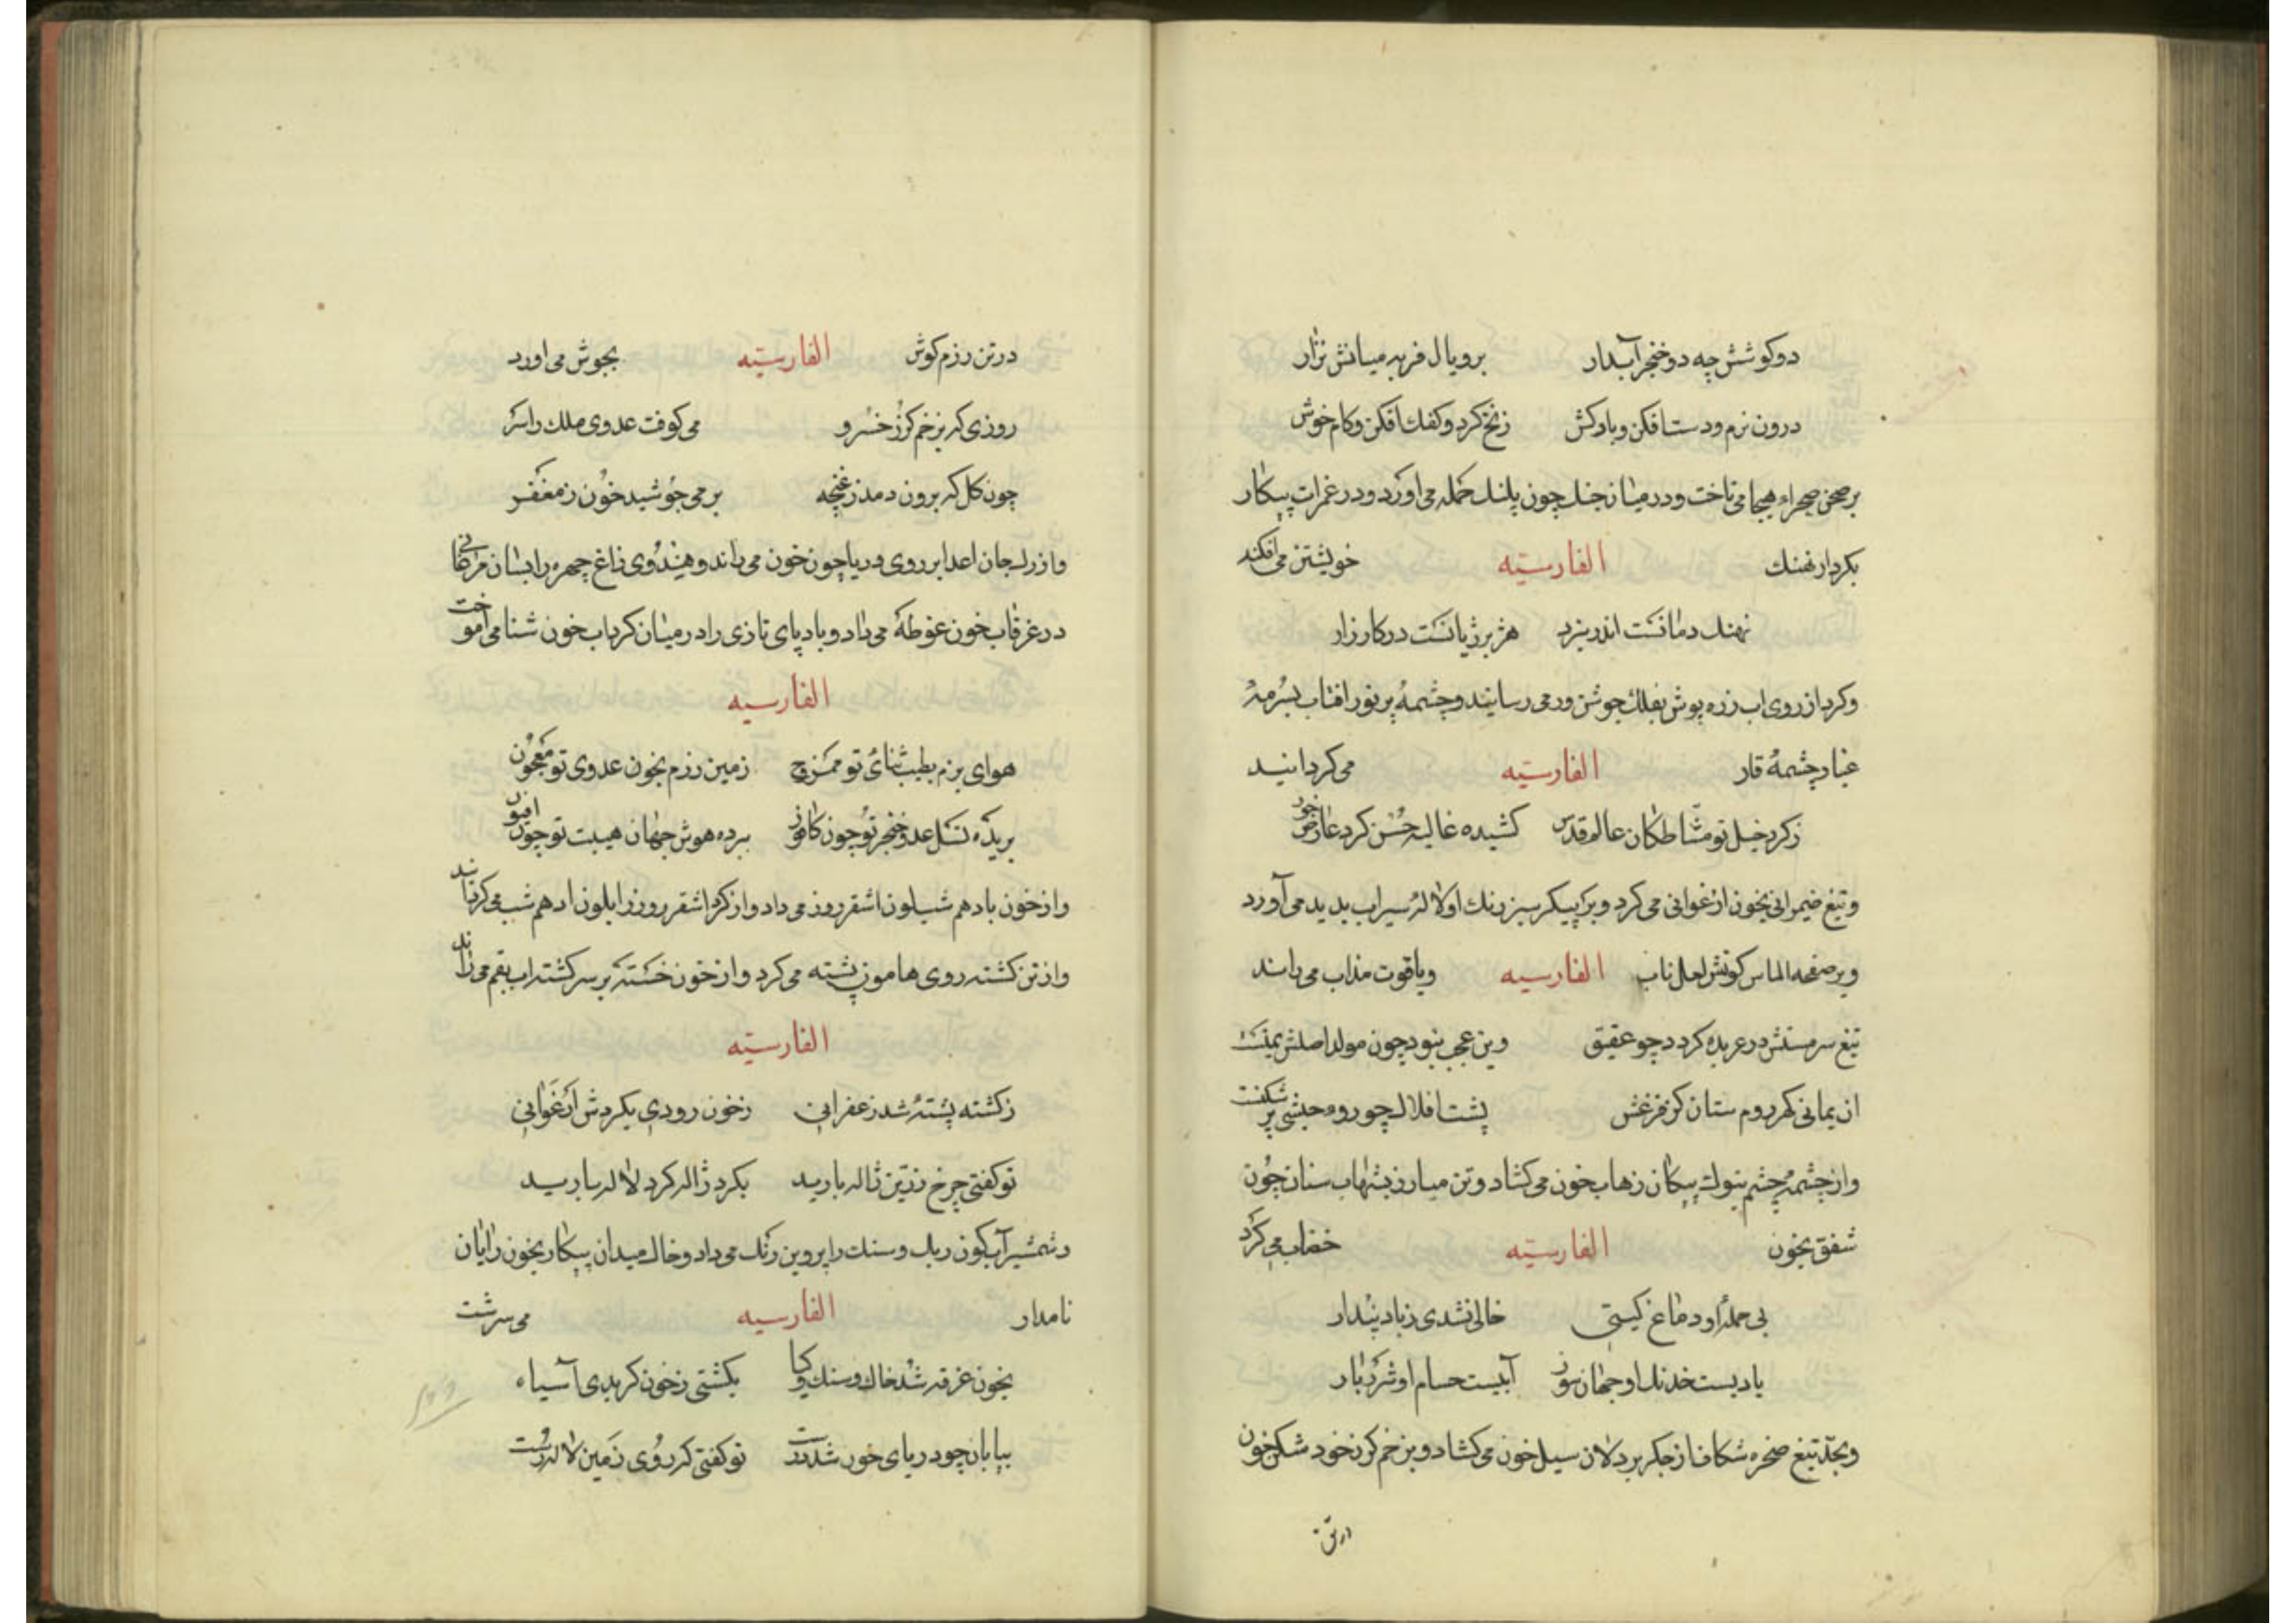 دو کوشش چه دو خنجر آبدار بر و یال فربه میانش نزار
درون نرم و دست افکن و بارکش زنخ کرد و کفک افکن و کام خوش
بر صحن صحراء هیجا می تاخت و در میان جنک چون پلنک حمله می آورد و در غمرات پیکار
بکردار نهنک الفارسیّه خویشتن می افکند
نهنک دمانست اندر نبرد هژبر ژیانست در کارزار
وکرد از روی اب زره پوش بفلک جوشن ور می رسانید و چشمهٔ پر نور افتاب بسرمهٔ
غبار چشمهٔ قار الفارسیّه می کردانید
ز کرد خیل تو مشّاطکان عالم قدس کشیده غالیه حسن کرد عارض حور
و تیغ ضیمرانی بخون ارغوانی می کرد و بر پیکر سبز رنك او لالهٔ سیراب پدید می آورد
و بر صفحه الماس کونش لعل ناب الفارسیه و یاقوت مذاب می راند
تیغ سر مستش در عربده کردد چو عقیق وین عجب نبود چون مولد اصلش یمنست
ان یمانی کهر روم ستان کز فزعش پشت افلاك چو روء حبشی پر شکنست
و از چشمهٔ چشم بنوك پیکان زهاب خون می کشاد و تن مبارز بشهاب سنان چون
شفق بخون الفارسیّه خضاب می کرد
بی حملهٔ او دماغ کیتی خالی نشدی ز باد پندار
بادیست خدنك او جهان سوز آبیست حسام او شرر بار
و بحدّ تیغ صخره شکاف از جکر پردلان سیل خون می کشاد و بزخم کرز خود شکن خون
در تن
در تن رزم کوش الفارسیّه بجوش می اورد
روزی که بزخم کرز خسرو می کوفت عدوی ملك را سر
چون کل که برون دمد ز غنچه بر می جوشید خون ز مغفر
و از رك جان اعدا بر روی دریا چون خون می راند و هیندوی زاغ چهره را بسان مرغابی
در غرقاب خون غوطه می داد و باد پای تازی را در میان کرداب خون شنا می آموخت
الفارسیه
هوای بزم بطیب ثنای تو ممزج زمین رزم بخون عدوی تو معجون
بریده نسل عدو خنجر تو چون کافور ببرده هوش جهان هیبت تو چون افیون
و از خون بادهم شب لون اشقر روز می داد و از کرد اشقر روز را بلون ادهم شب می کردانید
و از تن کشته روی هامون پشته می کرد و از خون خسته بر سر کشته اب بقم می راند
الفارسیّه
ز کشته پشتهٔ شد زعفرانی ز خون رودی بکردش ارغوانی
تو کفتی چرخ زرّین ژاله بارید بکرد ژاله کرد لاله بارید
و شمشیر آبکون ریك و سنك را پروین رنك می داد و خاك میدان پیکار بخون رایان
نامدار الفارسیه می سرشت
بخون غرقه شد خاك و سنك و کیا بکشتی ز خون کر بدی آسیاه
بیابان چو دریای خون شد درست تو کفتی که روی زمین لاله رست